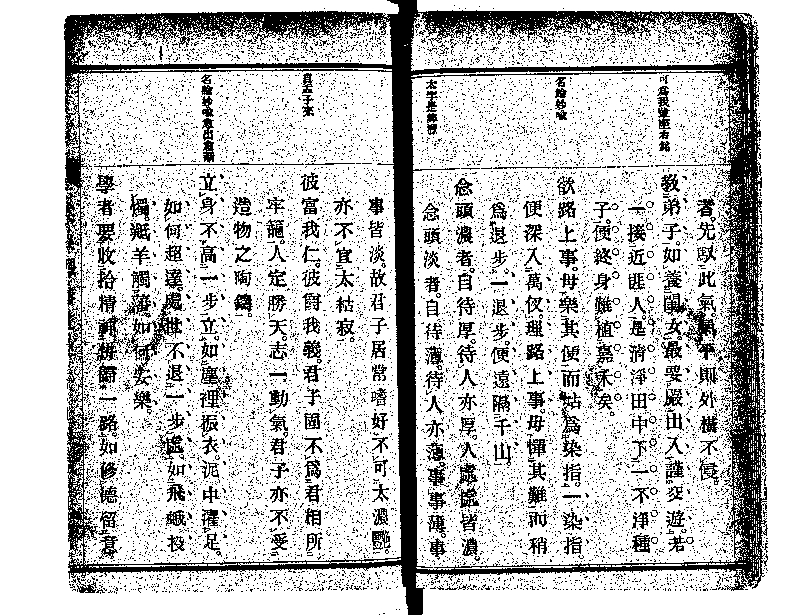 可為我輩座右銘
名喩妙喩
太字是辨滯
者先馭此氣氣平則外橫不侵
教弟子如養閨女最要嚴出入謹交遊若
一接近匪人是淸淨田中下一不淨種
子便終身難植嘉禾矣
欲路上事毋樂其便而姑爲染指一染指
便深入萬仭理路上事毋憚其難而稍
爲退步一退步便遠隔千山
念頭濃者自待厚待人亦厚人處處皆濃
念頭淡者自待薄待人亦薄事事薄事
事皆淡故君子居常嗜好不可太濃艷
亦不宜太枯寂
彼富我仁彼爵我義君子固不爲君相所
牢籠人定勝天志一動氣君子亦不受
造物之陶鑄
立身不高一步立如塵裡振衣泥中濯足
如何超達處世不退一步處如飛蛾投
燭羝羊觸藩如何安樂
學者要收拾精神倂歸一路如修德留意